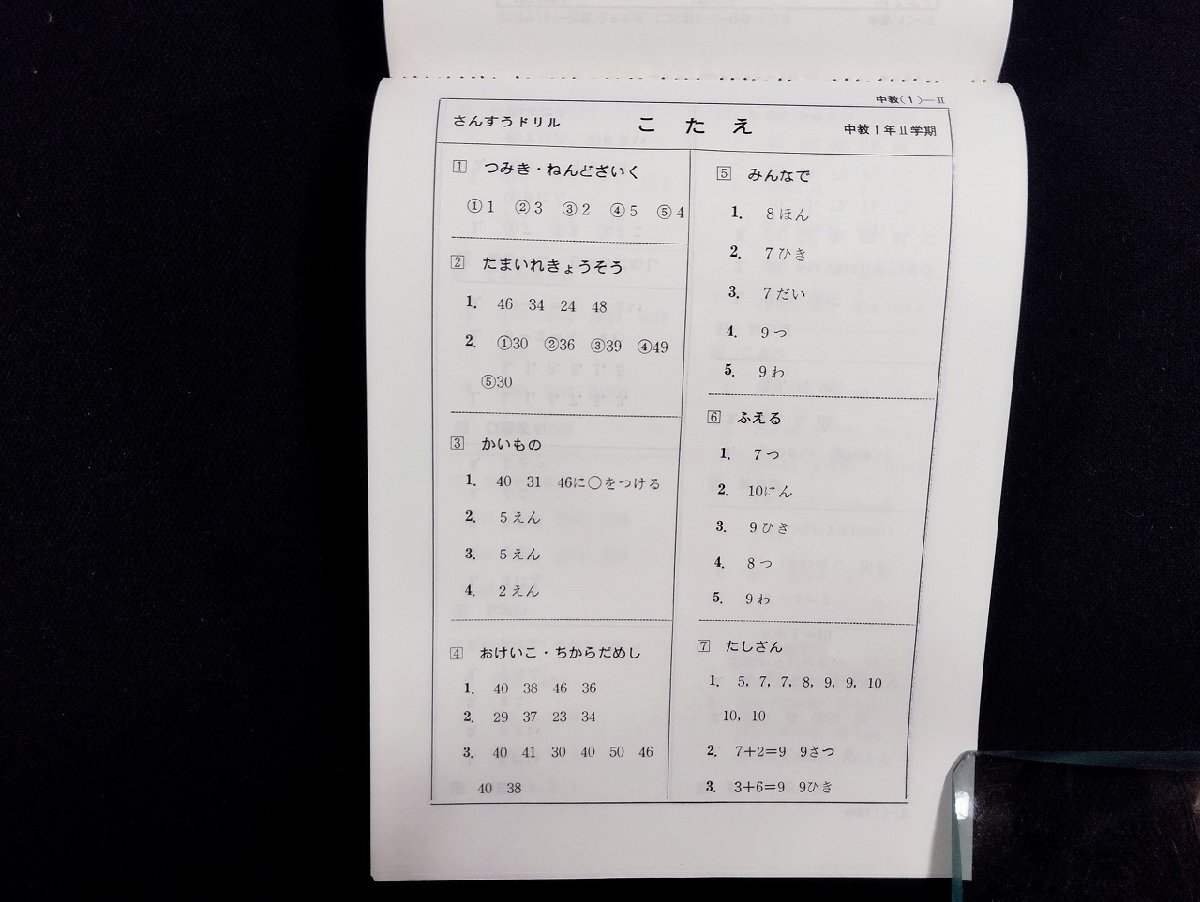 中教(1)—II
さんすうドリル こたえ 中教1年II学期
1 つみき・ねんどざいく
①1 ②3 ③2 ④5 ⑤4
2 たまいれきょうそう
1. 46 34 24 48
2. ①30 ②36 ③39 ④49
⑤30
3 かいもの
1. 40 31 46に○をつける
2. 5えん
3. 5えん
4. 2えん
4 おけいこ・ちからだめし
1. 40 38 46 36
2. 29 37 23 34
3. 40 41 30 40 50 46
40 38
5 みんなで
1. 8ほん
2. 7ひき
3. 7だい
4. 9つ
5. 9わ
6 ふえる
1. 7つ
2. 10にん
3. 9ひき
4. 8つ
5. 9わ
7 たしざん
1. 5, 7, 7, 8, 9, 9, 10
10, 10
2. 7+2=9 9さつ
3. 3+6=9 9ひき